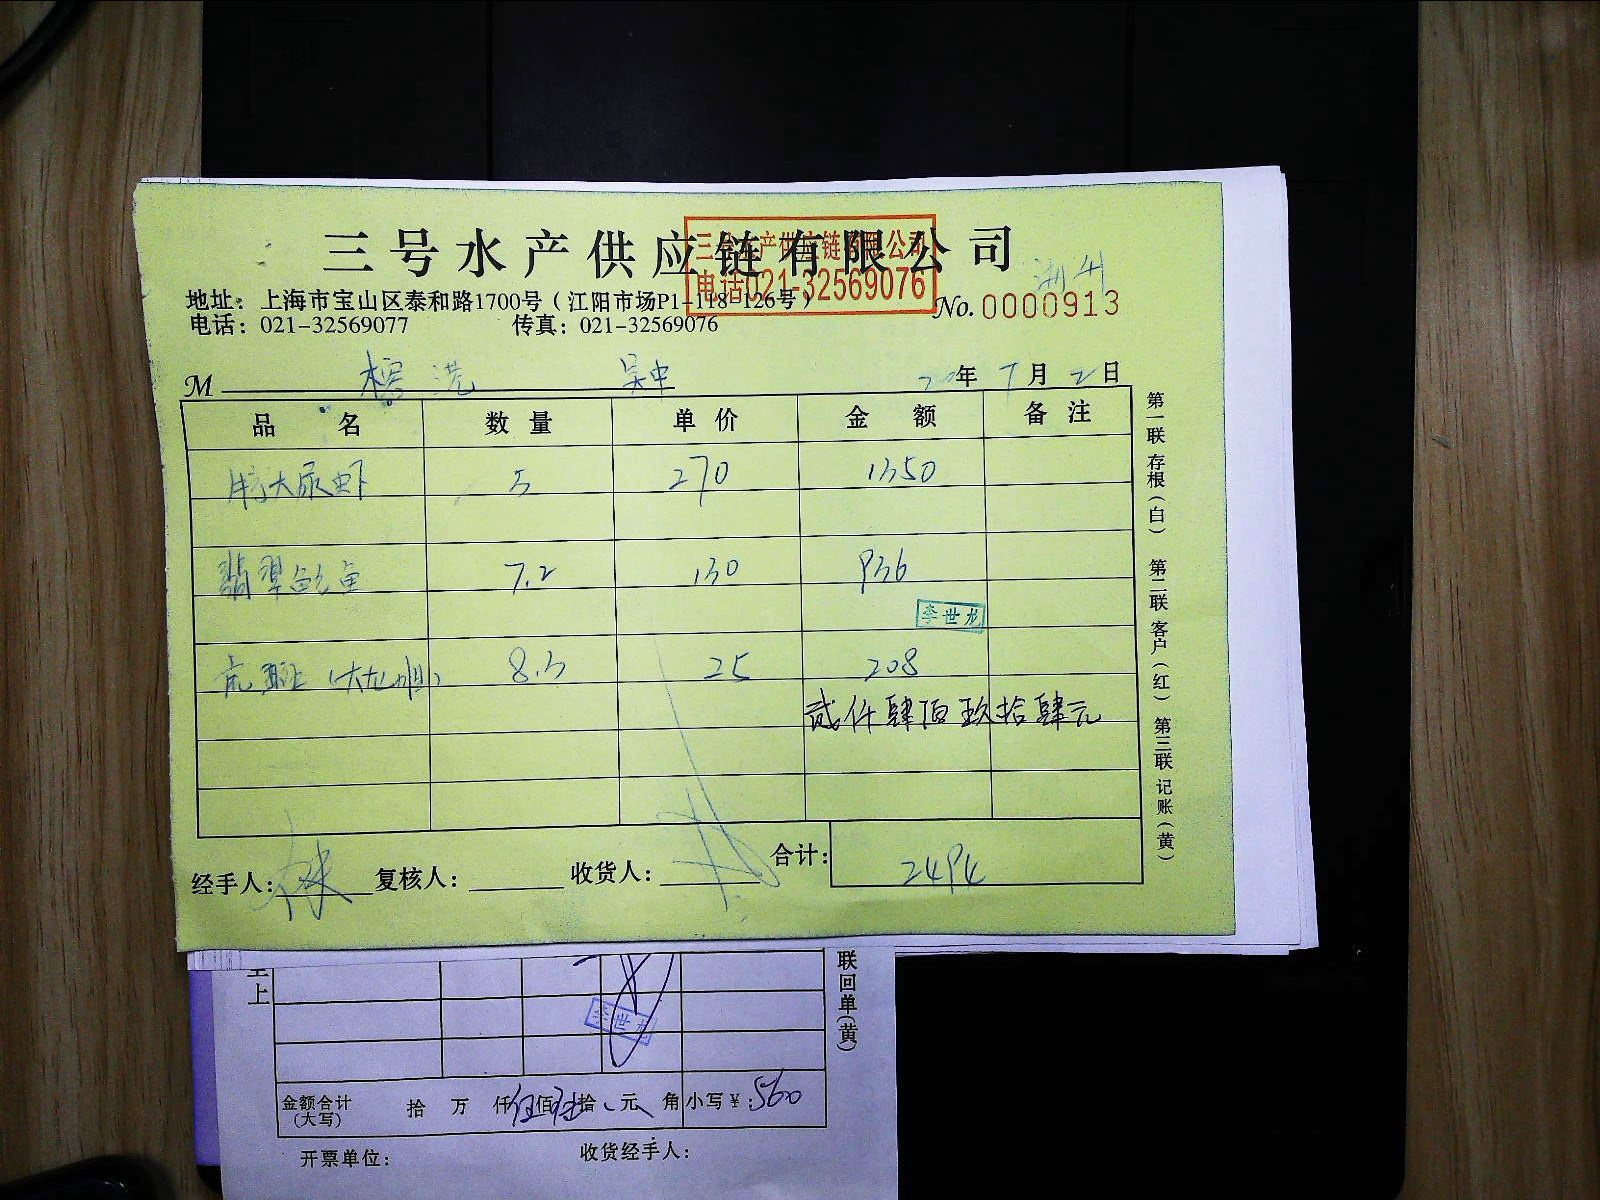 三号水产供应链有限公司
三号水产供应链有限公司
电话021-32569076
地址：上海市宝山区泰和路1700号（江阳市场P1-118-126号）
No. 0000913
电话：021-32569077 传真：021-32569076
M
年 7月2日
品 名 数量 单价 金 额 备注
特大尿虾 5 270 1350
翡翠鲍鱼 7.2 130 936
李世龙
8.3 25 208
贰仟肆佰玖拾肆元
经手人：林 复核人： 收货人： 合计：2494
第一联 存根（白） 第二联 客户（红） 第三联 记账（黄）
联回单（黄）
上
李世龙
金额合计（大写） 拾 万 仟伍佰陆拾 元 角 小写￥：560
开票单位： 收货经手人：